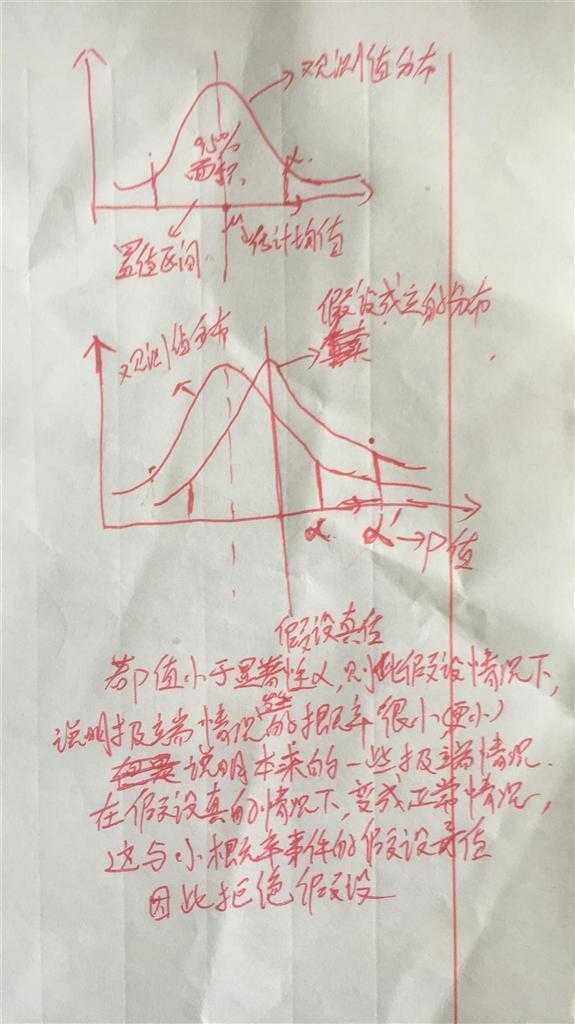 观测值分布
95%
面积
α
μ
置信区间
估计均值
假设成立的分布
观测值分布
α
α'→P值
假设真值
若P值小于显著性α,则此假设情况下,
说明极端情况发生的概率很小(更小)
说明本来的一些极端情况
在假设真的情况下,变成正常情况,
这与小概率事件的假设矛盾
因此拒绝假设